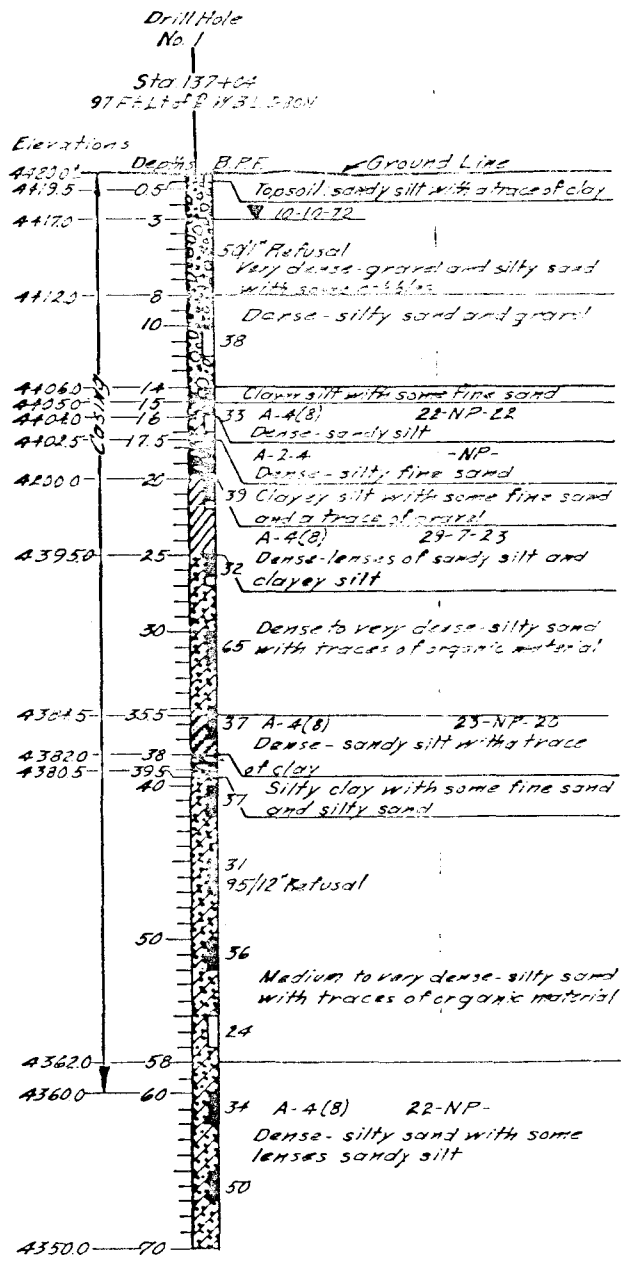 Drill Hole
No. 1
Sta. 137+04
97 Ft. Lt of
Elevations
Depths B.P.F. Ground Line
4420.0
4419.5 0.5 Topsoil: sandy silt with a trace of clay
4417.0 3 10-10-72
50/1" Refusal
Very dense-gravel and silty sand
with some cobbles
4412.0 8
Dense-silty sand and gravel
10
38
4406.0 14
Clayey silt with some fine sand
4405.0 15
4404.0 16 33 A-4(8) 22-NP-22
Dense-sandy silt
4402.5 17.5
A-2-4 -NP-
Dense-silty fine sand
4200.0 20
39 Clayey silt with some fine sand
and a trace of gravel
A-4(8) 29-7-23
4395.0 25 Dense-lenses of sandy silt and
32 clayey silt
CASING
30 Dense to very dense-silty sand
65 with traces of organic material
4384.5 35.5
37 A-4(8) 23-NP-20
Dense-sandy silt with a trace
of clay
4382.0 38
4380.5 39.5
Silty clay with some fine sand
and silty sand
40
37
31
95/12" Refusal
50
36
Medium to very dense-silty sand
with traces of organic material
24
4362.0 58
4360.0 60
34 A-4(8) 22-NP-
Dense-silty sand with some
lenses sandy silt
50
4350.0 70